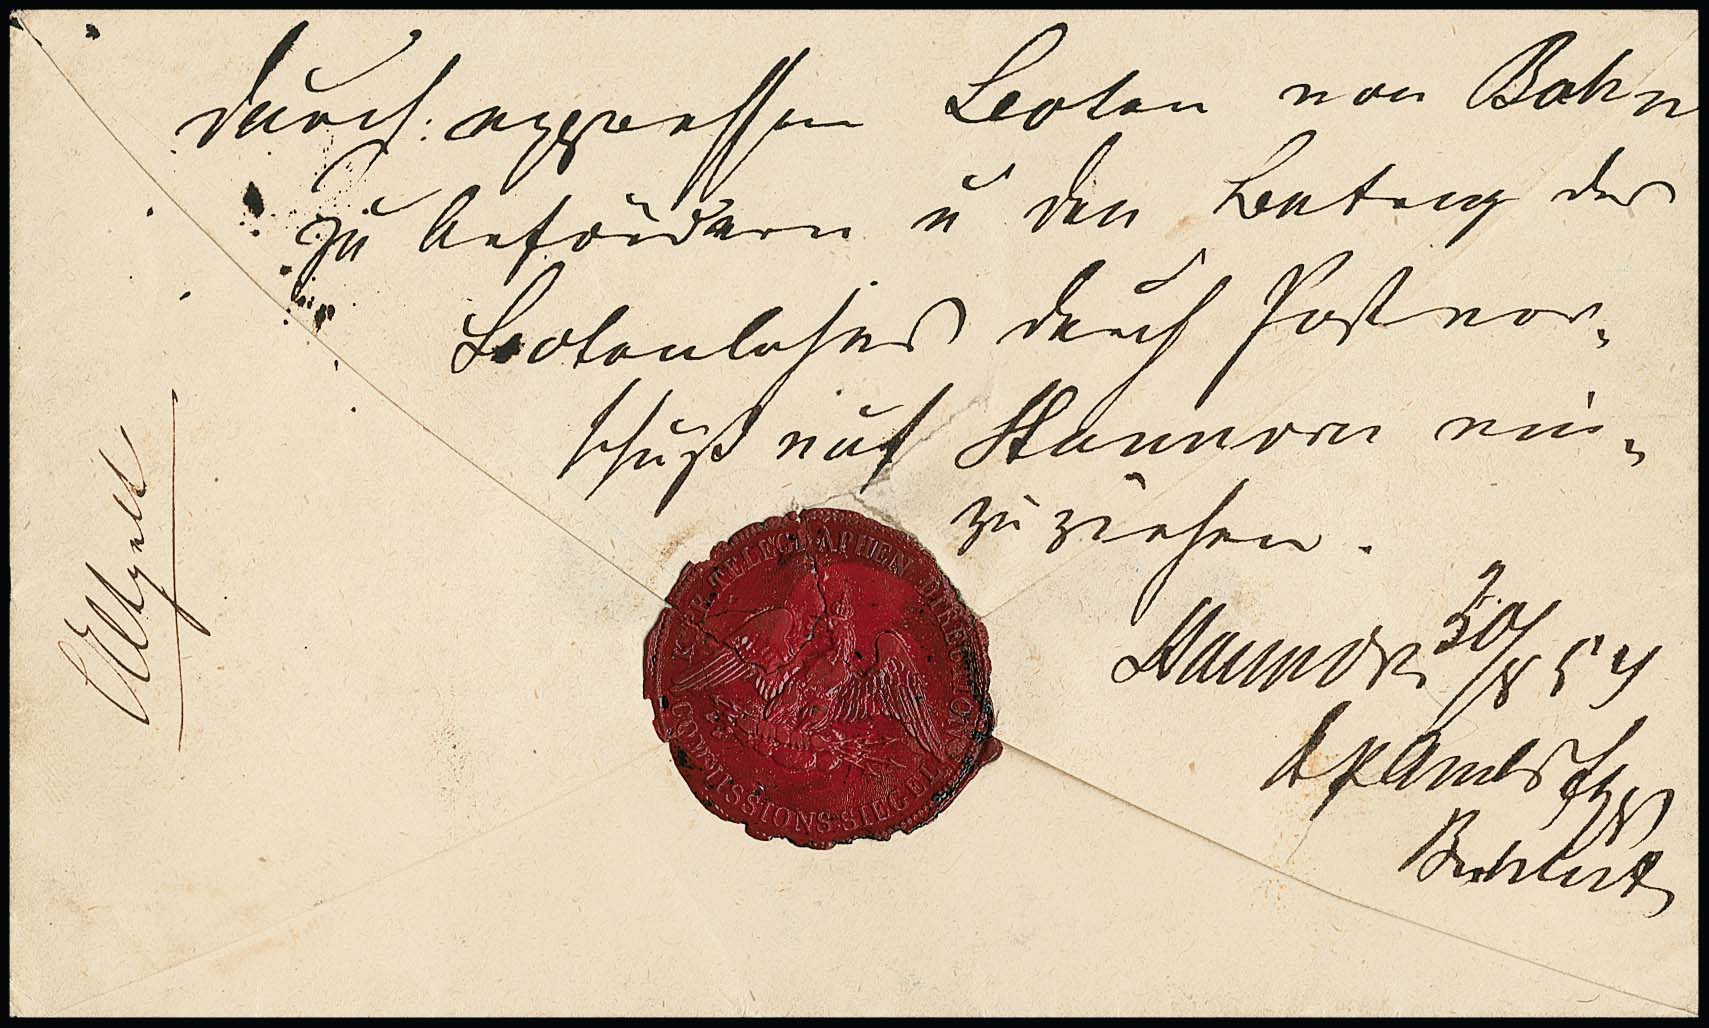 durch expressen Boten von Bahn
zu befördern u den Betrag des
Botenlohns durch Postvor-
schuß auf Hannover ein-
zuziehen.
Hannover 30/8 54
K. PR. TELEGRAPHEN DIRECTION
COMMISSIONS-SIEGEL